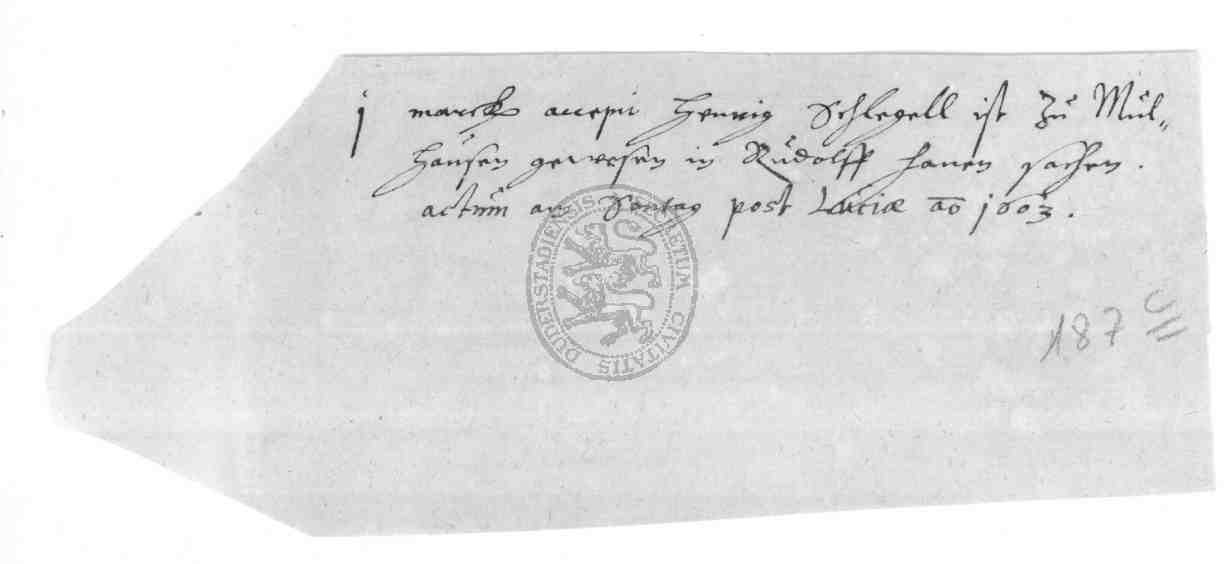 j marck accepit Henrig Schlegell ist zu Mül„
hausen gewesen in Rudolff hanen sachen.
actum am Sontag post Luciæ ao 1603.
SECRETUM CIVITATIS DUDERSTADIENSIS
187